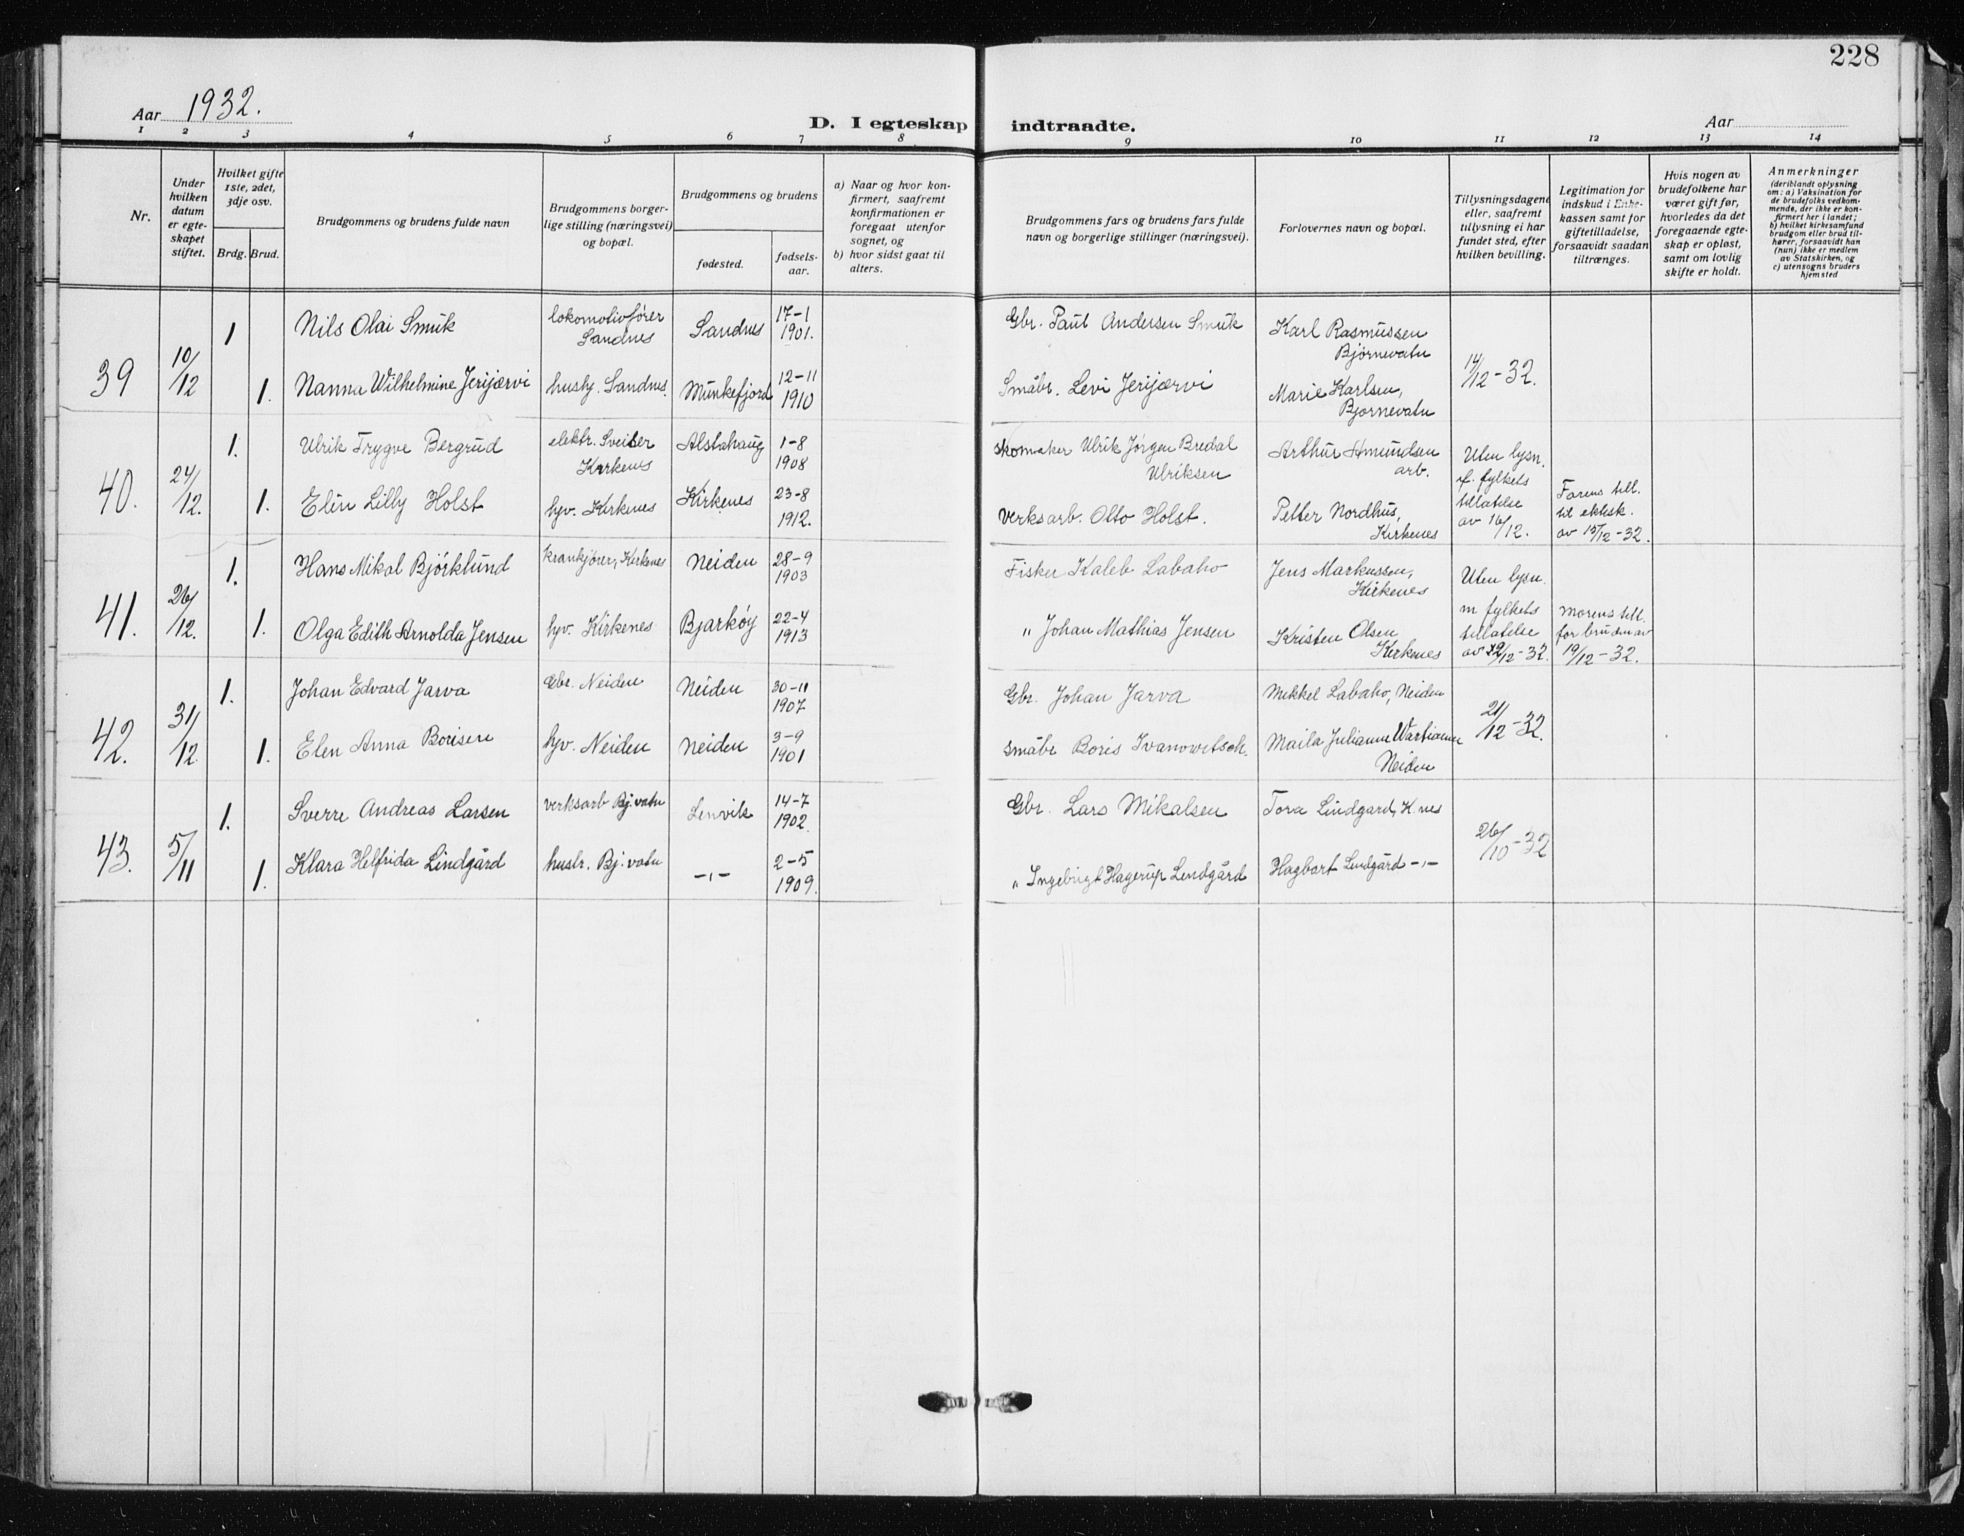 228
Aar 1932.
D. I egteskap indtraadte.
Aar
1 2 3 4 5 6 7 8 9 10 11 12 13 14
Nr.
Under hvilken datum er egteskapet stiftet.
Hvilket gifte 1ste, 2det, 3dje osv.
Brdg. Brud.
Brudgommens og brudens fulde navn
Brudgommens borgerlige stilling (næringsvei) og bopæl.
Brudgommens og brudens
fødested.
fødselsaar.
a) Naar og hvor konfirmert, saafremt konfirmationen er foregaat utenfor sognet, og
b) hvor sidst gaat til alters.
Brudgommens fars og brudens fars fulde navn og borgerlige stillinger (næringsvei).
Forlovernes navn og bopæl.
Tillysningsdagene eller, saafremt tillysning ei har fundet sted, efter hvilken bevilling.
Legitimation for indskud i Enkekassen samt for giftetilladelse, forsaavidt saadan tiltrænges.
Hvis nogen av brudefolkene har været gift før, hvorledes da det foregaaende egteskap er opløst, samt om lovlig skifte er holdt.
Anmerkninger
(deriblandt oplysning om: a) Vaksination for de brudefolks vedkommende, der ikke er konfirmert her i landet; b) hvilket kirkesamfund brudgom eller brud tilhører, forsaavidt han (hun) ikke er medlem av Statskirken, og c) utensogns bruders hjemsted
39 10/12
1 Nils Olai Smuk lokomotivfører Sandnes Sandnes 17-1 1901. Gbr. Paul Andersen Smuk Karl Rasmussen Bjørnevatn
1. Nanna Wilhelmine Jerijærvi husby. Sandnes. Munkefjord 12-11 1910 Småbr. Levi Jerijærvi Marie Karlsen, Bjørnevatn 14/12-32.
40. 24/12.
1. Ulrik Trygve Bergrud elektr. Sveiser Kirkenes Alstahaug 1-8 1908 skomaker Ulrik Jørgen Bredal Ulriksen Arthur Amundsen arb.
1. Elin Lilly Holst hjv. Kirkenes Kirkenes 23-8 1912. verksarb. Otto Holst. Petter Nordhus, Kirkenes
Uten lysn. e. fylkets tillatelse av 16/12.
Farens till. til ektesk. av 15/12-32.
41. 26/12.
1. Hans Mikal Bjørklund krankjører, Kirkenes Neiden 28-9 1903 Fisker Kaleb Labaho Jens Markussen, Kirkenes
1. Olga Edith Arnolda Jensen hjv. Kirkenes Bjarkøy 22-4 1913 " Johan Mathias Jensen Kristen Olsen Kirkenes
Uten lysn. m fylkets tillatelse av 22/12-32.
Morens till. for bruden av 19/12-32.
42. 31/12
1. Johan Edvard Jarva Gbr. Neiden Neiden 30-11 1907 Gbr. Johan Jarva Mikkel Labaho, Neiden
1. Elen Anna Borisen hjv. Neiden Neiden 3-9 1901 småbr Boris Ivanowitsch. Maila Julianne Wartiainen Neiden 21/12-32.
43. 5/11
1. Sverre Andreas Larsen verksarb Bj.vatn Lenvik 14-7 1902. Gbr. Lars Mikalsen Tora Lindgård, K.nes
1. Klara Helfrida Lindgård hustr. Bj.vatn -"- 2-5 1909. " Ingebrigt Hagerup Lindgård Hagbart Lindgård -"- 26/10-32